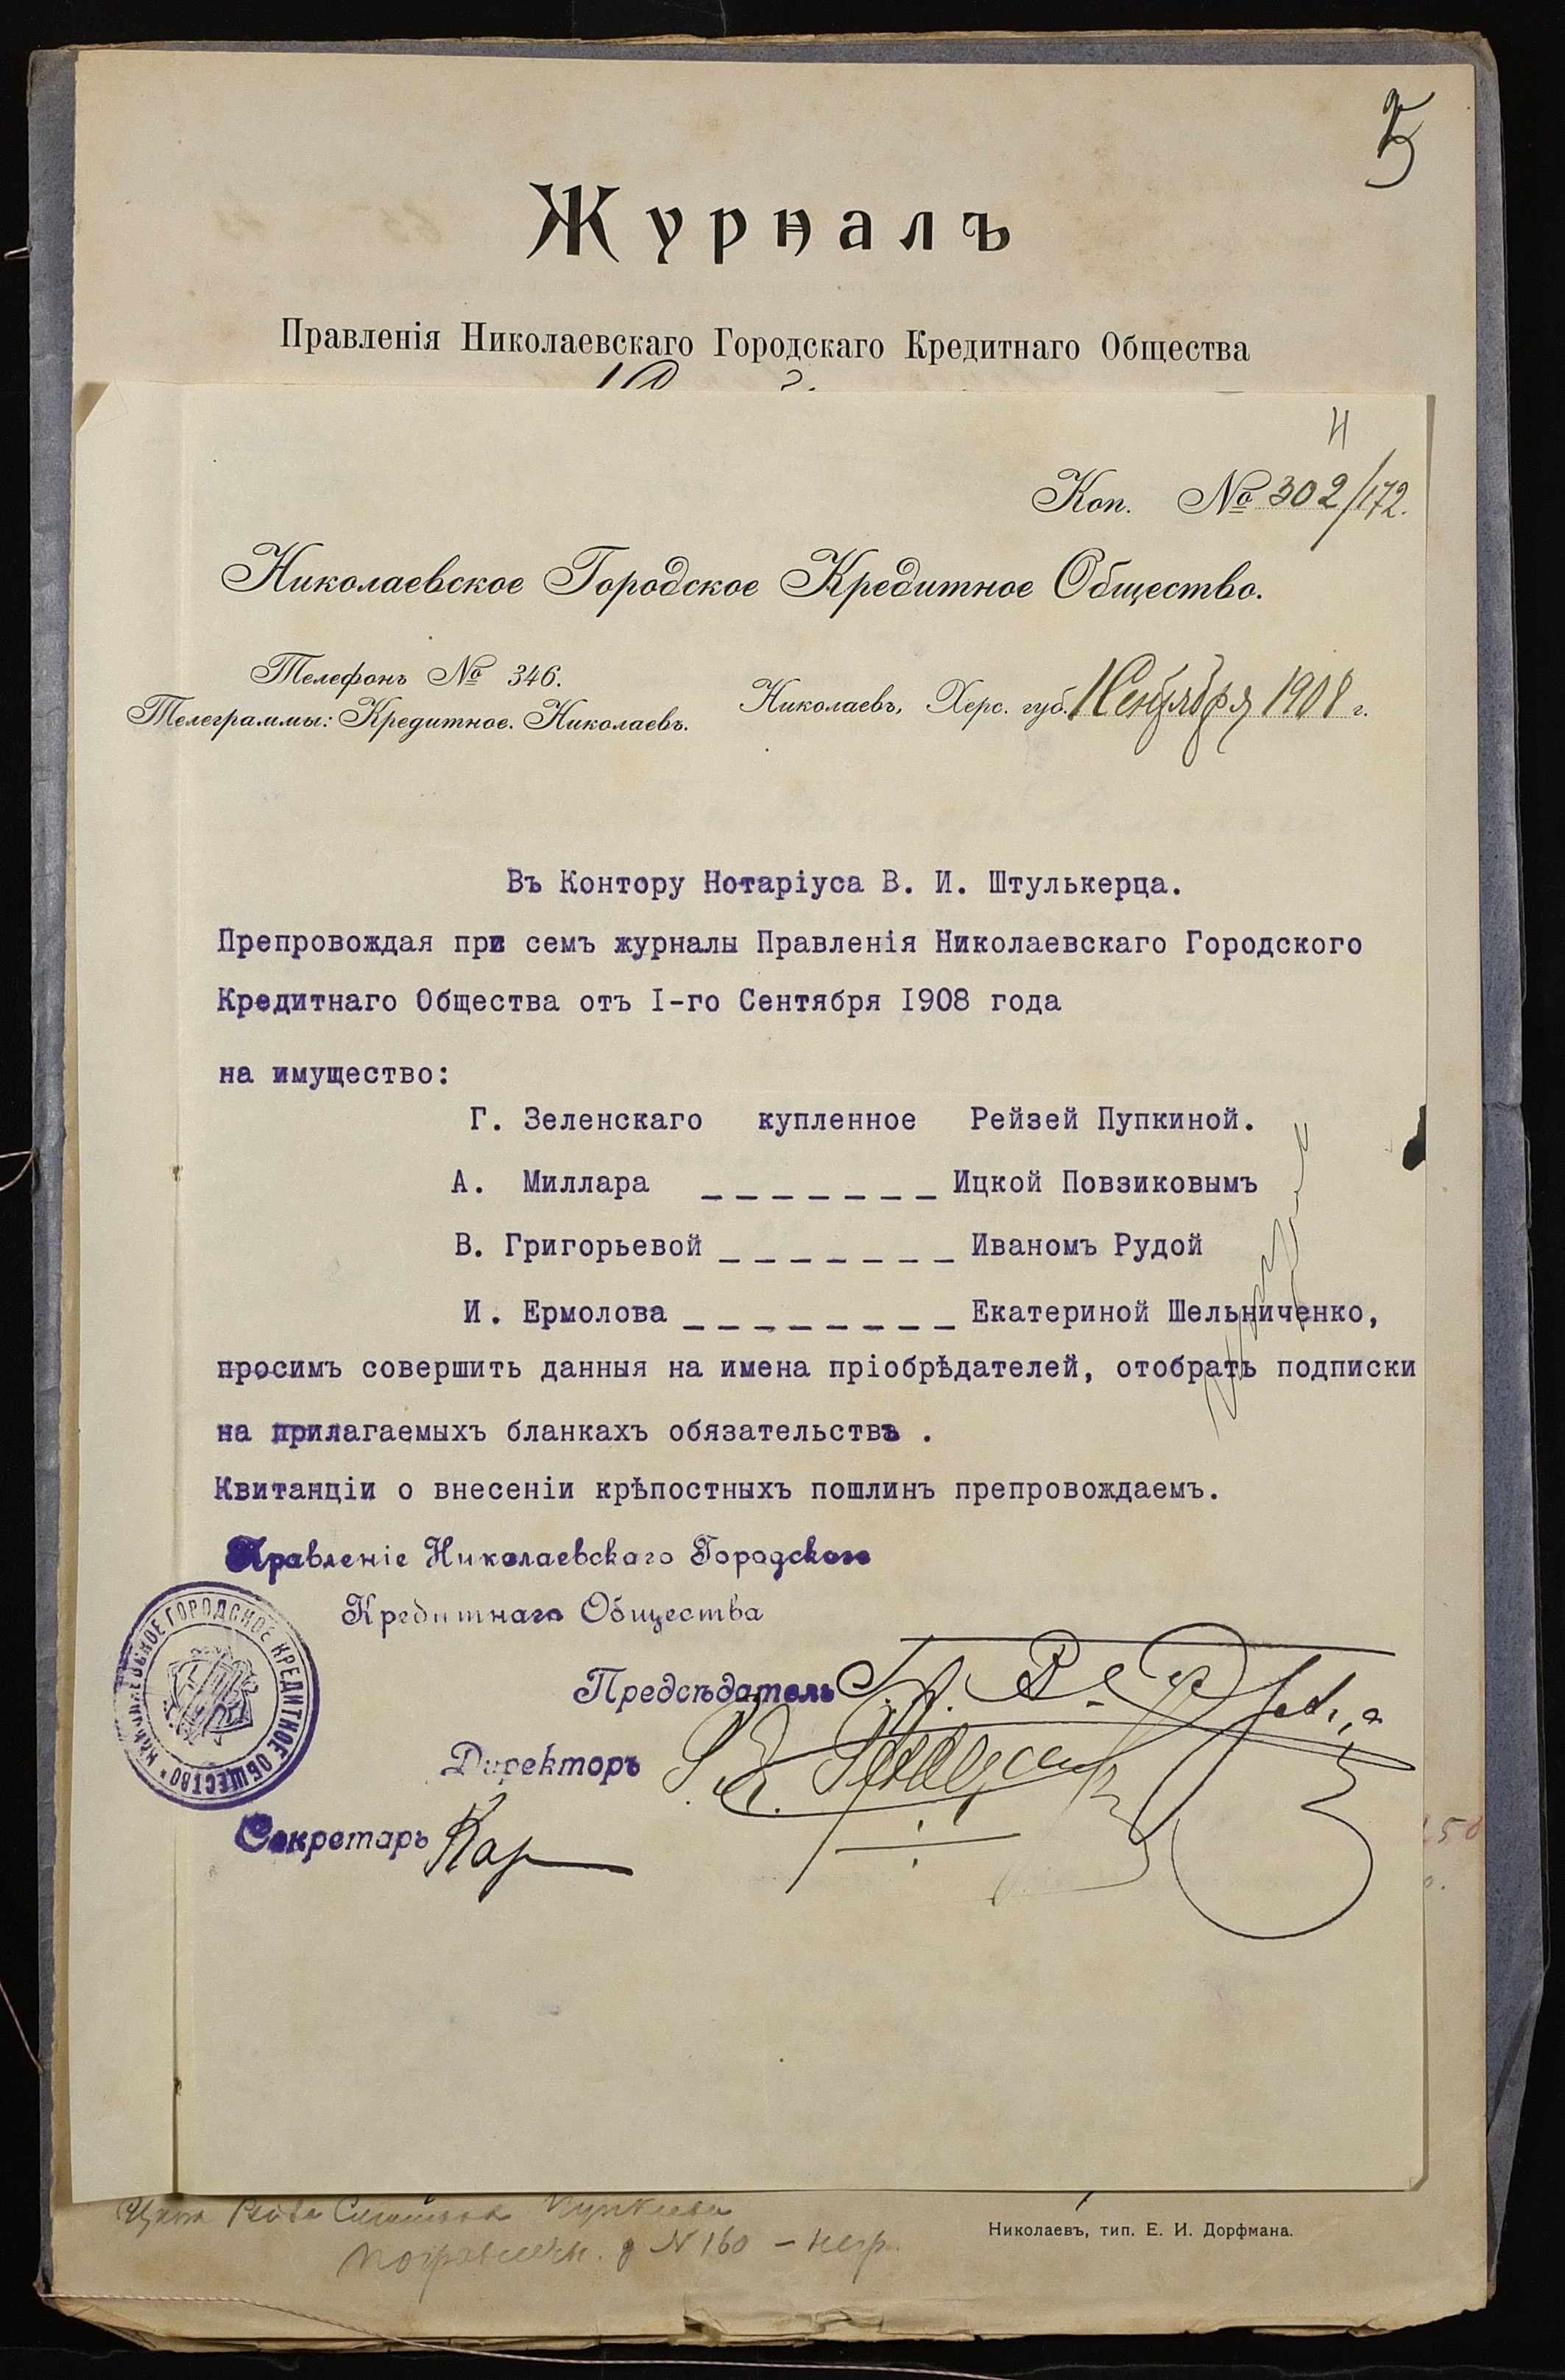 Журналъ
Правленія Николаевскаго Городскаго Кредитнаго Общества
Коп. № 302/172.
Николаевское Городское Кредитное Общество.
Телефонъ № 346.
Телеграммы: Кредитное. Николаевъ.
Николаевъ, Херс. губ. 1 Сентября 1908 г.
Въ Контору Нотаріуса В. И. Штулькерца.
Препровождая при семъ журналы Правленія Николаевскаго Городского
Кредитнаго Общества отъ I-го Сентября I908 года
на имущество:
Г. Зеленскаго купленное Рейзей Пупкиной.
А. Миллара _ _ _ _ _ _ _ Ицкой Повзиковымъ
В. Григорьевой _ _ _ _ _ _ _ Иваномъ Рудой
И. Ермолова _ _ _ _ _ _ _ _ Екатериной Шельниченко,
просимъ совершить данныя на имена пріобрѣдателей, отобрать подписки
на прилагаемыхъ бланкахъ обязательствъ .
Квитанціи о внесеніи крѣпостныхъ пошлинъ препровождаемъ.
Правленіе Николаевскаго Городского
Кредитнаго Общества
НИКОЛАЕВСКОЕ ГОРОДСКОЕ КРЕДИТНОЕ ОБЩЕСТВО
Предсѣдатель
Директоръ
Секретарь
№ 160
Николаевъ, тип. Е. И. Дорфмана.